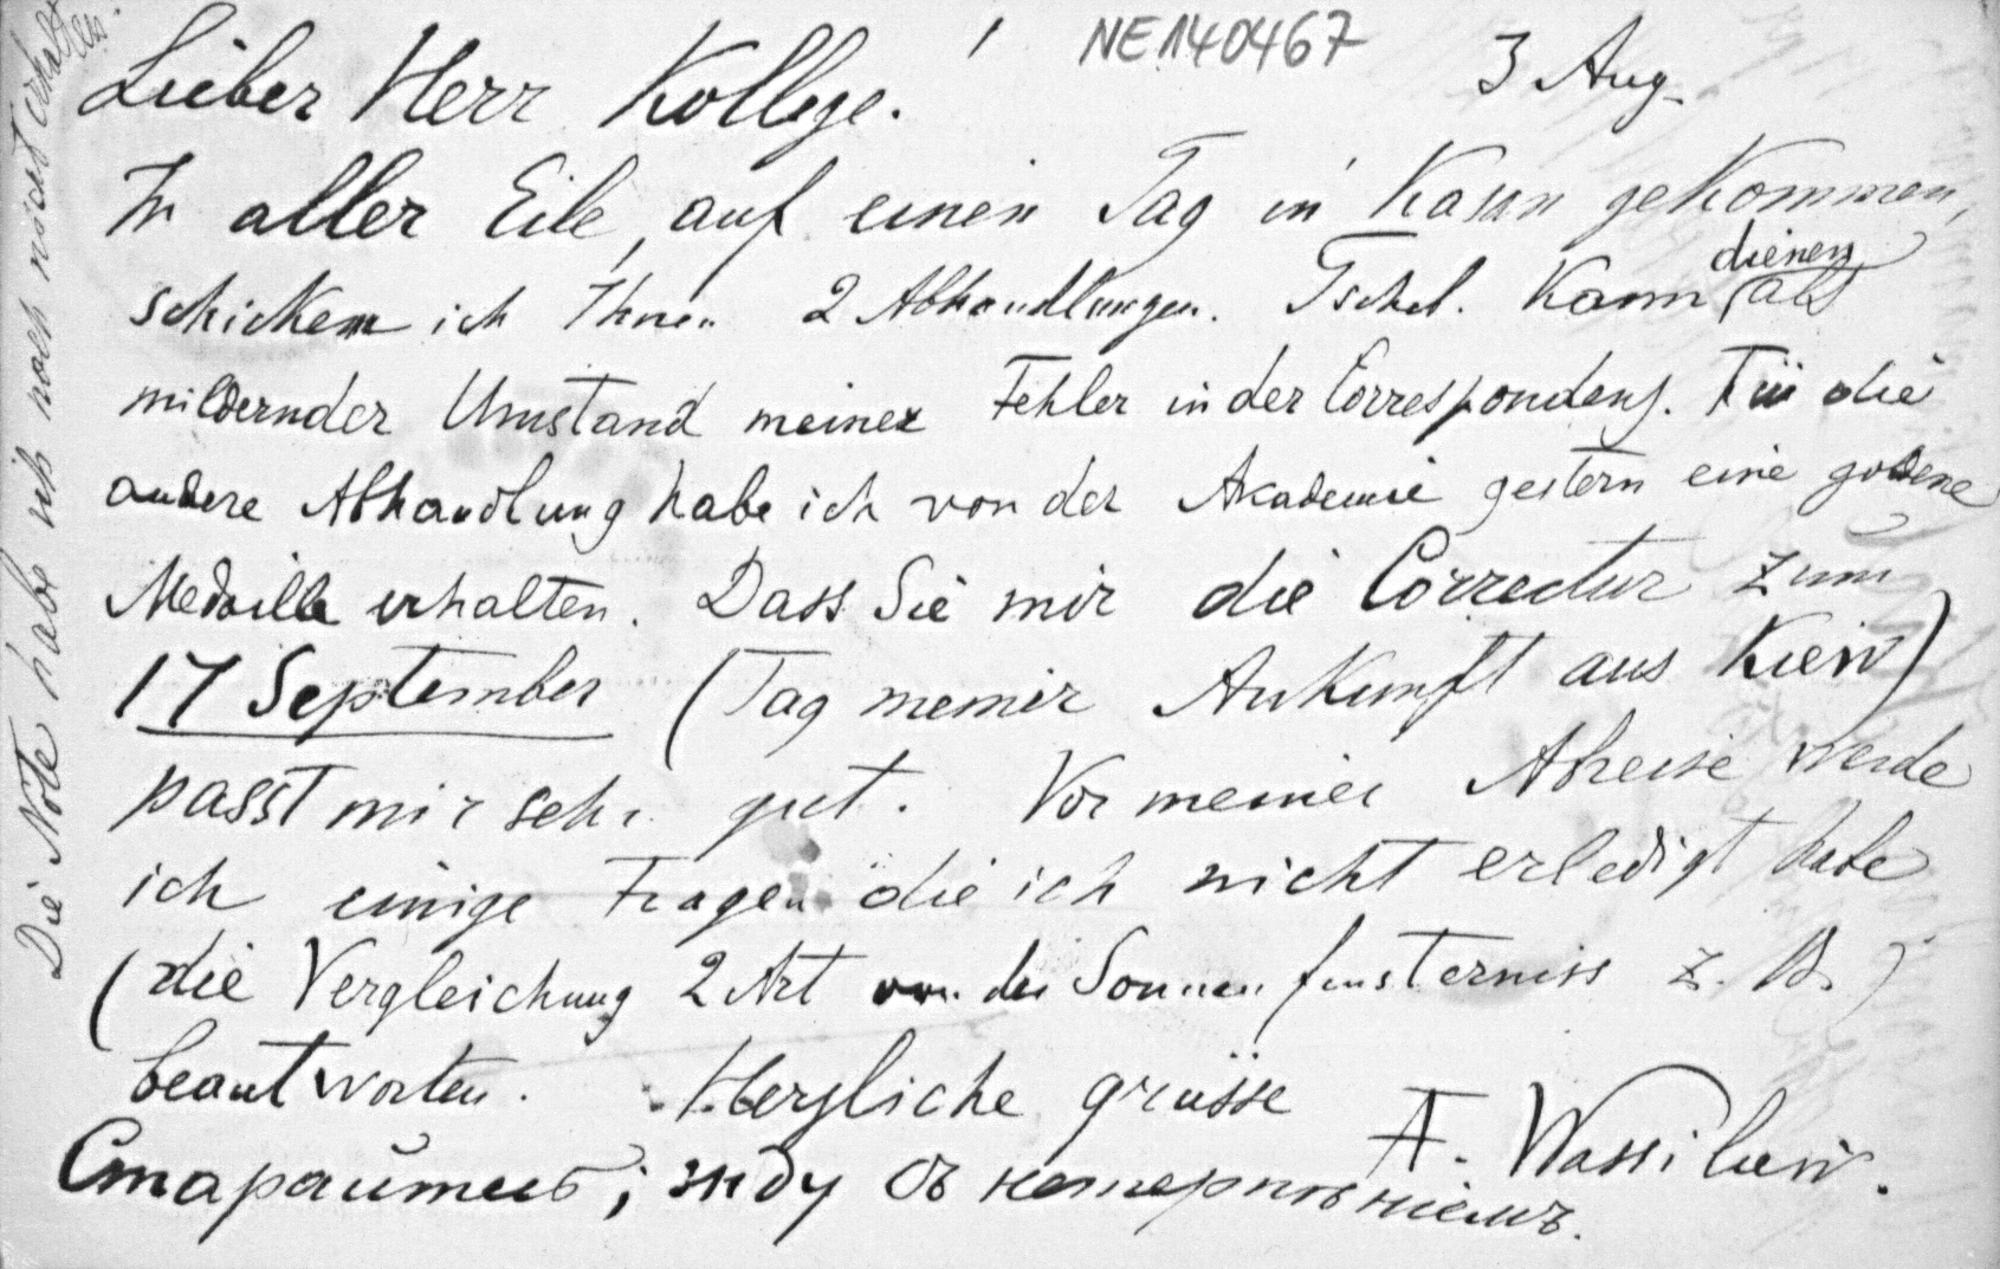 NE140467
3 Aug.
Lieber Herr Kollege.
In aller Eile, auf einen Tag in Kasan gekommen,
schicken ich Ihnen 2 Abhandlungen. Tschel. Kann dienen als
mildernder Umstand meiner Fehler in der Correspondenz. Für die
andere Abhandlung habe ich von der Akademie gestern eine goldene
Medaille erhalten. Dass Sie mir die Correctur zum
17 September (Tag meiner Ankunft aus Kiew)
passt mir sehr gut. Vor meiner Abreise werde
ich einige Fragen die ich nicht erledigt habe
(die Vergleichung 2 Art der Sonnenfinsterniss z. B.)
beantworten. Herzliche grüsse
A. Wassiliew.
Старайтесь; жду съ нетерпѣніемъ.
Die Note habe ich noch nicht erhalten.